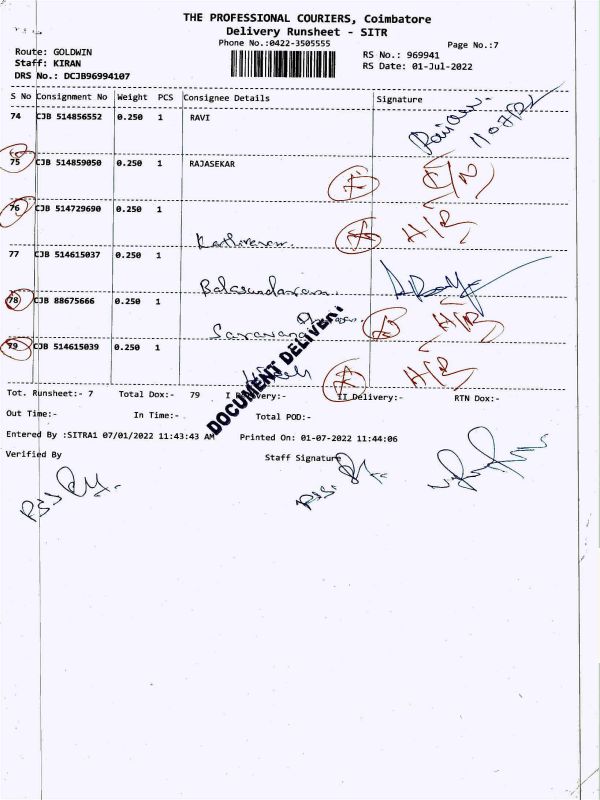 THE PROFESSIONAL COURIERS, Coimbatore
Delivery Runsheet - SITR
Phone No.:0422-3505555
Page No.:7
Route: GOLDWIN
Staff: KIRAN
DRS No.: DCJB96994107
RS No.: 969941
RS Date: 01-Jul-2022
S No Consignment No Weight PCS Consignee Details Signature
74 CJB 514856552 0.250 1 RAVI
75 CJB 514859050 0.250 1 RAJASEKAR
76 CJB 514729690 0.250 1
H/R
77 CJB 514615037 0.250 1
Balasundaram
78 CJB 88675666 0.250 1
Saravana
H/R
79 CJB 514615039 0.250 1
H/R
DOCUMENT DELIVERY
Tot. Runsheet:- 7 Total Dox:- 79 I Delivery:- II Delivery:- RTN Dox:-
Out Time:- In Time:- Total POD:-
Entered By :SITRA1 07/01/2022 11:43:43 AM Printed On: 01-07-2022 11:44:06
Verified By Staff Signature